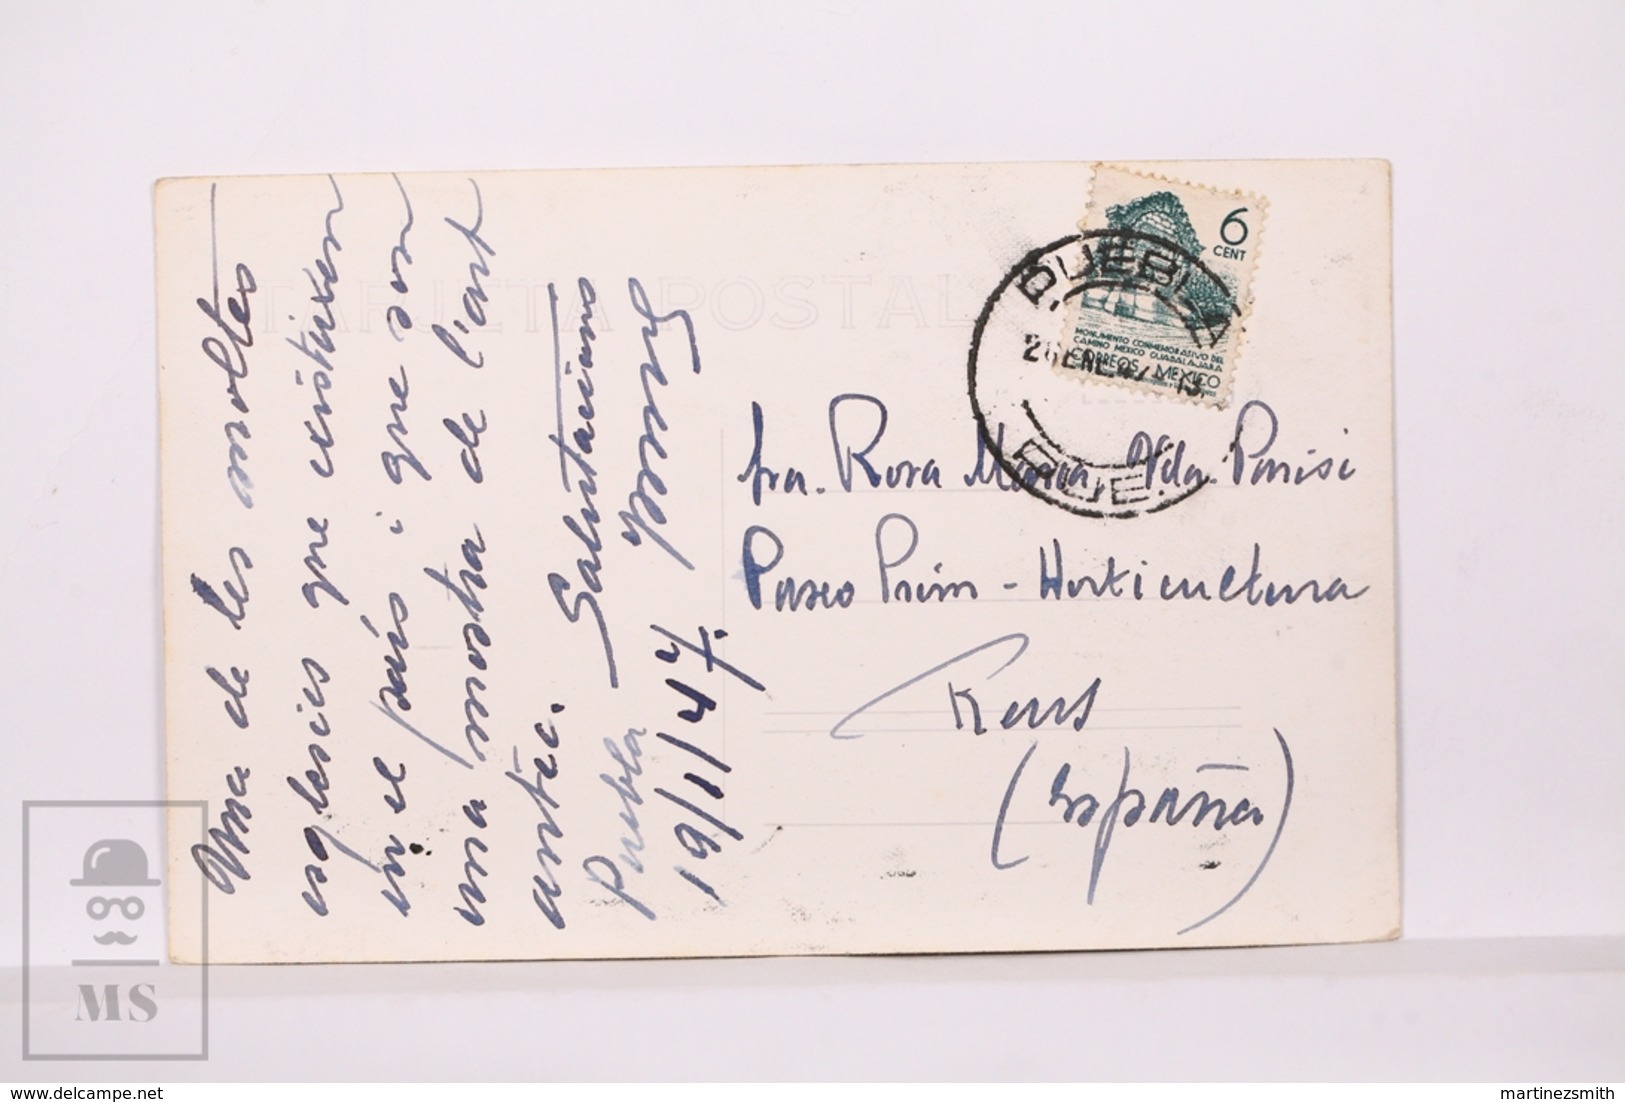 Una de les moltes
esglesies que existeixen
en el país i que son
una mostra de l'art
antic. Salutacions
Puebla
19/1/47.
TARJETA POSTAL
6
CENT
MONUMENTO CONMEMORATIVO DEL
CAMINO MEXICO GUADALAJARA
CORREOS MEXICO
PUEBLA
26 ENE. 47
PUE.
Sra. Rosa Maria Vda. Parisi
Paseo Prim - Horticultura
Reus
(España)
MS
www.delcampe.net
martinezsmith